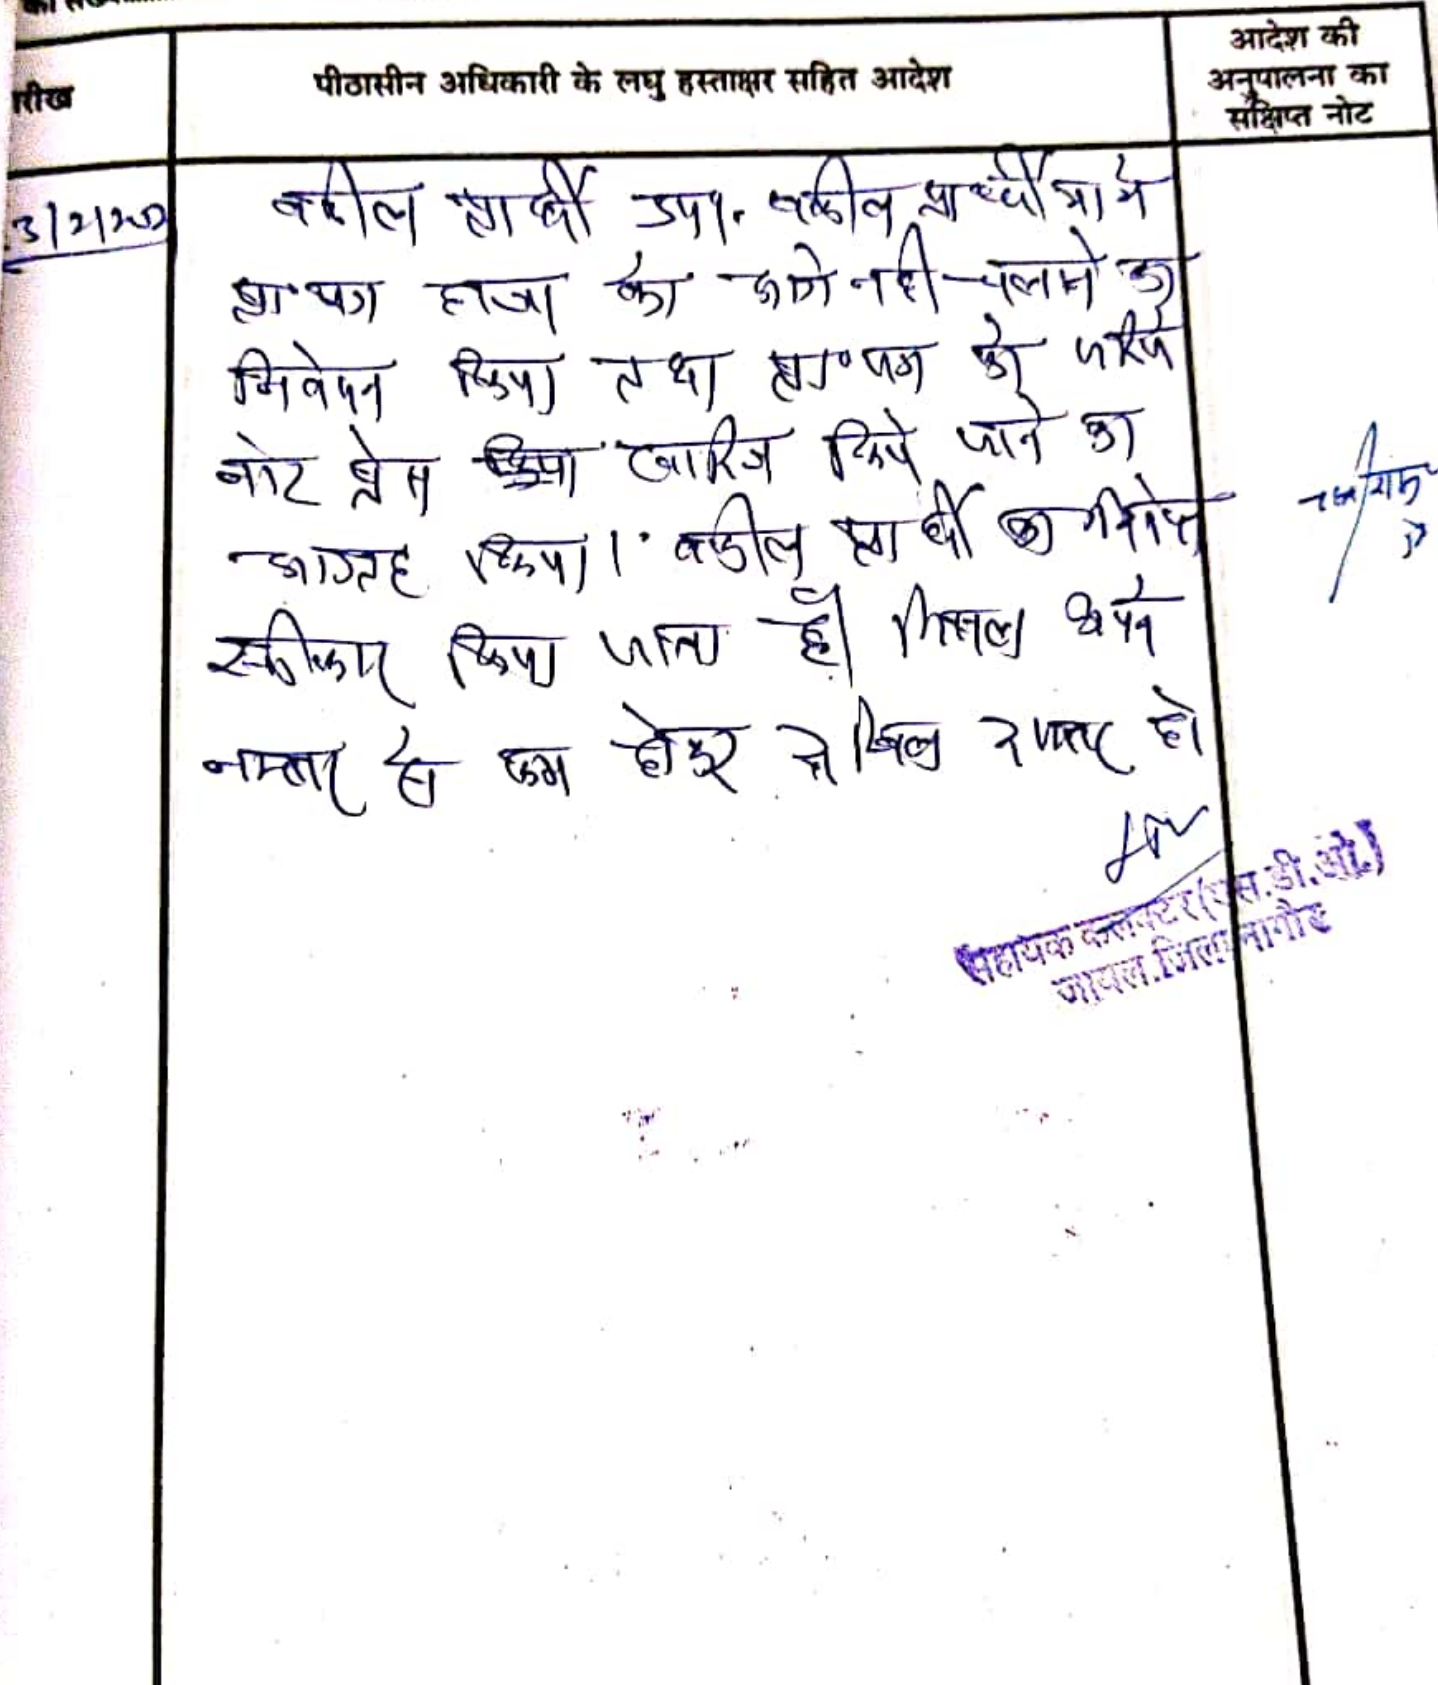 रीख
पीठासीन अधिकारी के लघु हस्ताक्षर सहित आदेश
आदेश की
अनुपालना का
संक्षिप्त नोट
वकील प्रार्थी उप०. वकील प्रार्थी ने
प्रा०पत्र हाजा को आगे नही चलाने का
निवेदन किया तथा प्रा०पत्र को जरिये
नोट प्रेस खारिज किये जाने का
आग्रह किया। वकील प्रार्थी का निवेदन
स्वीकार किया जाता है। मिसल
नम्बर से कम होकर दाखिल दफ्तर हो
सहायक कलक्टर(एस.डी.ओ.)
जायल.जिला नागौर